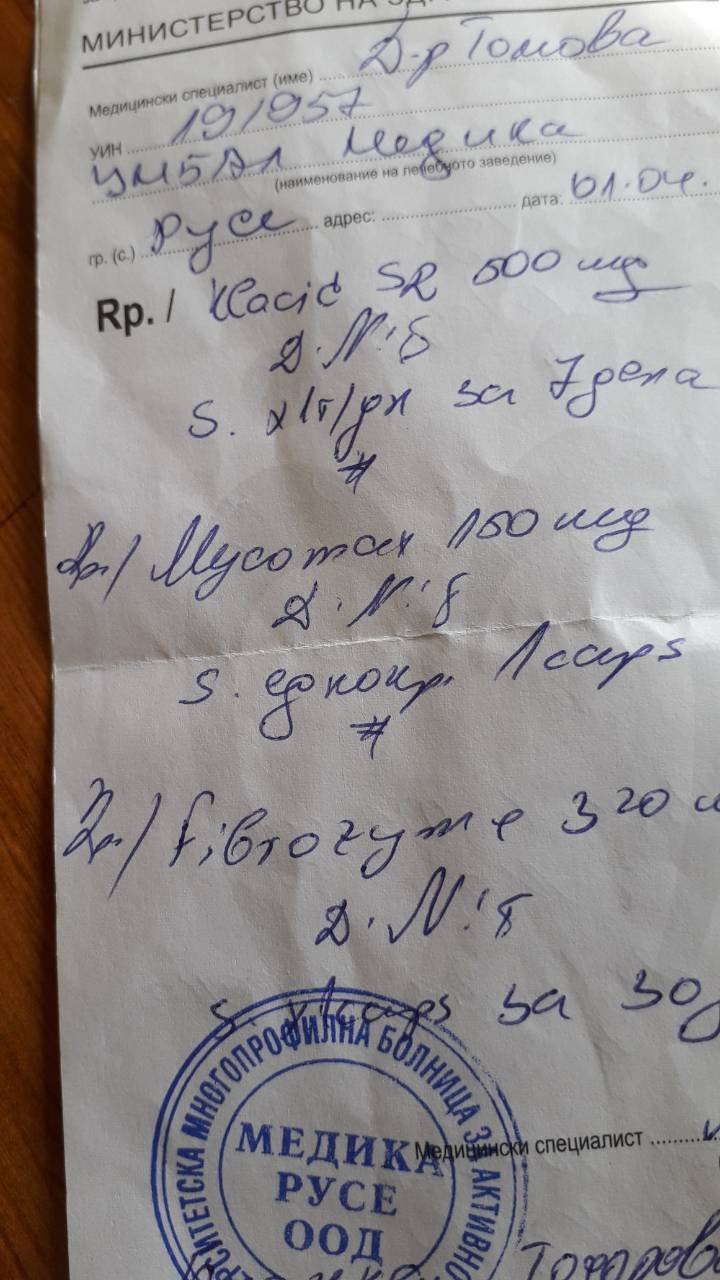 МИНИСТЕРСТВО НА
Медицински специалист (име) Д-р Томова
УИН 19/957
УМБАЛ Медика
(наименование на лечебното заведение)
гр. (с.) Русе адрес: дата: 01.04.
Rp. / Klacid SR 500 mg
D. N:
S. x1т/дн за 7 дена
#
Rp. / Mycomax 150 mg
D. N:
S. еднокр. 1 caps
#
Rp. / Fibrozyme 320
D. N:
S. x1caps за 30
УНИВЕРСИТЕТСКА МНОГОПРОФИЛНА БОЛНИЦА ЗА АКТИВНО
МЕДИКА
РУСЕ
ООД
Медицински специалист